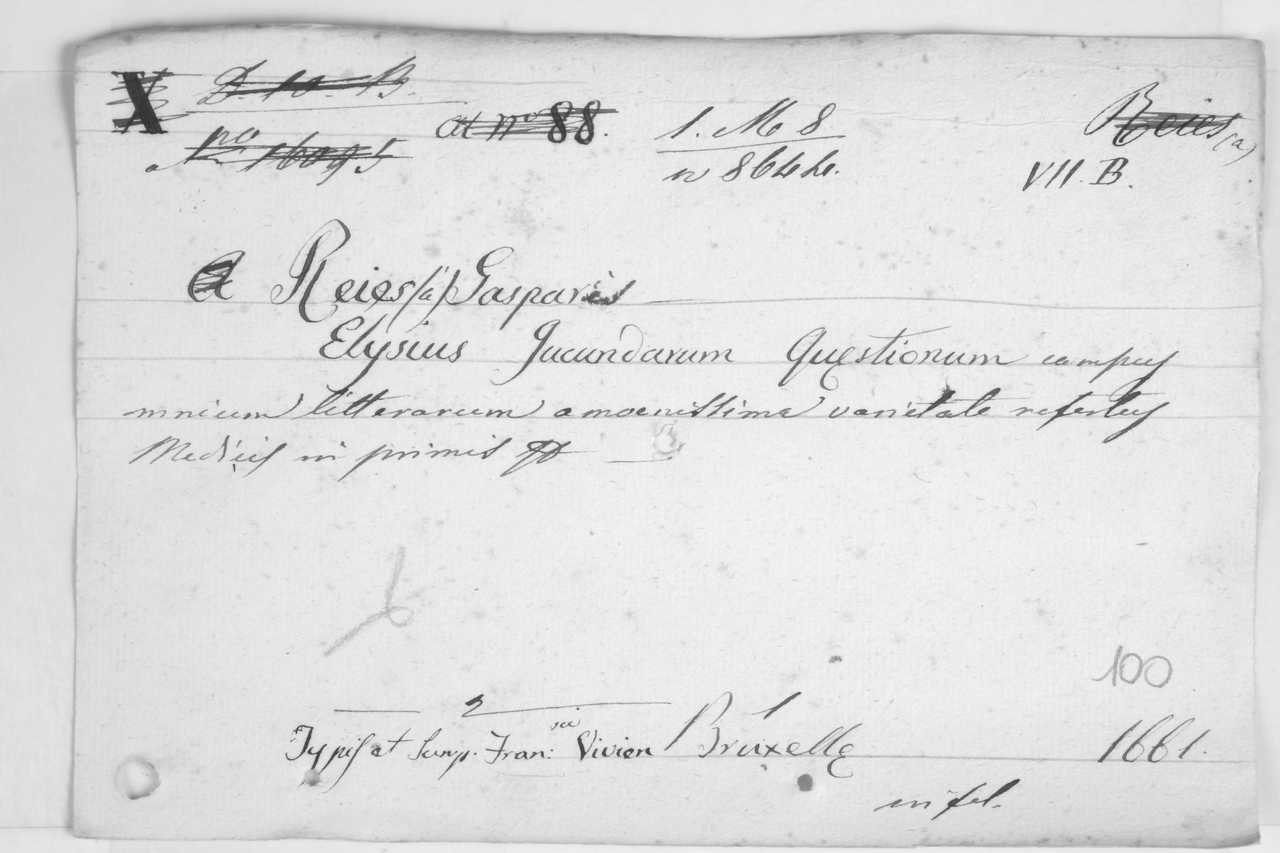 X D. 10. B.
No 16095
at no 88.
1. M 8
n 8644.
Reies (a)
VII. B.
a Reies (a) Gasparis
Elysius Jucundarum Quęstionum campus
mnium litterarum amoenissima varietate refertus
Medicis in primis
100
2
Typis et Sump. Fran:sci Vivien Bruxellę 1661.
in fol.